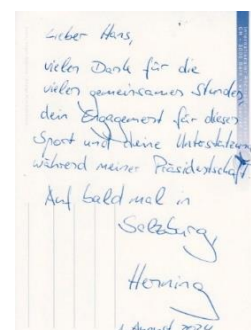 Lieber Hans,
vielen Dank für die
vielen gemeinsamen Stunden
dein Engagement für diesen
Sport und deine
während meiner Präsidentschaft
Auf bald mal in
Salzburg
Henning
1. August 2024